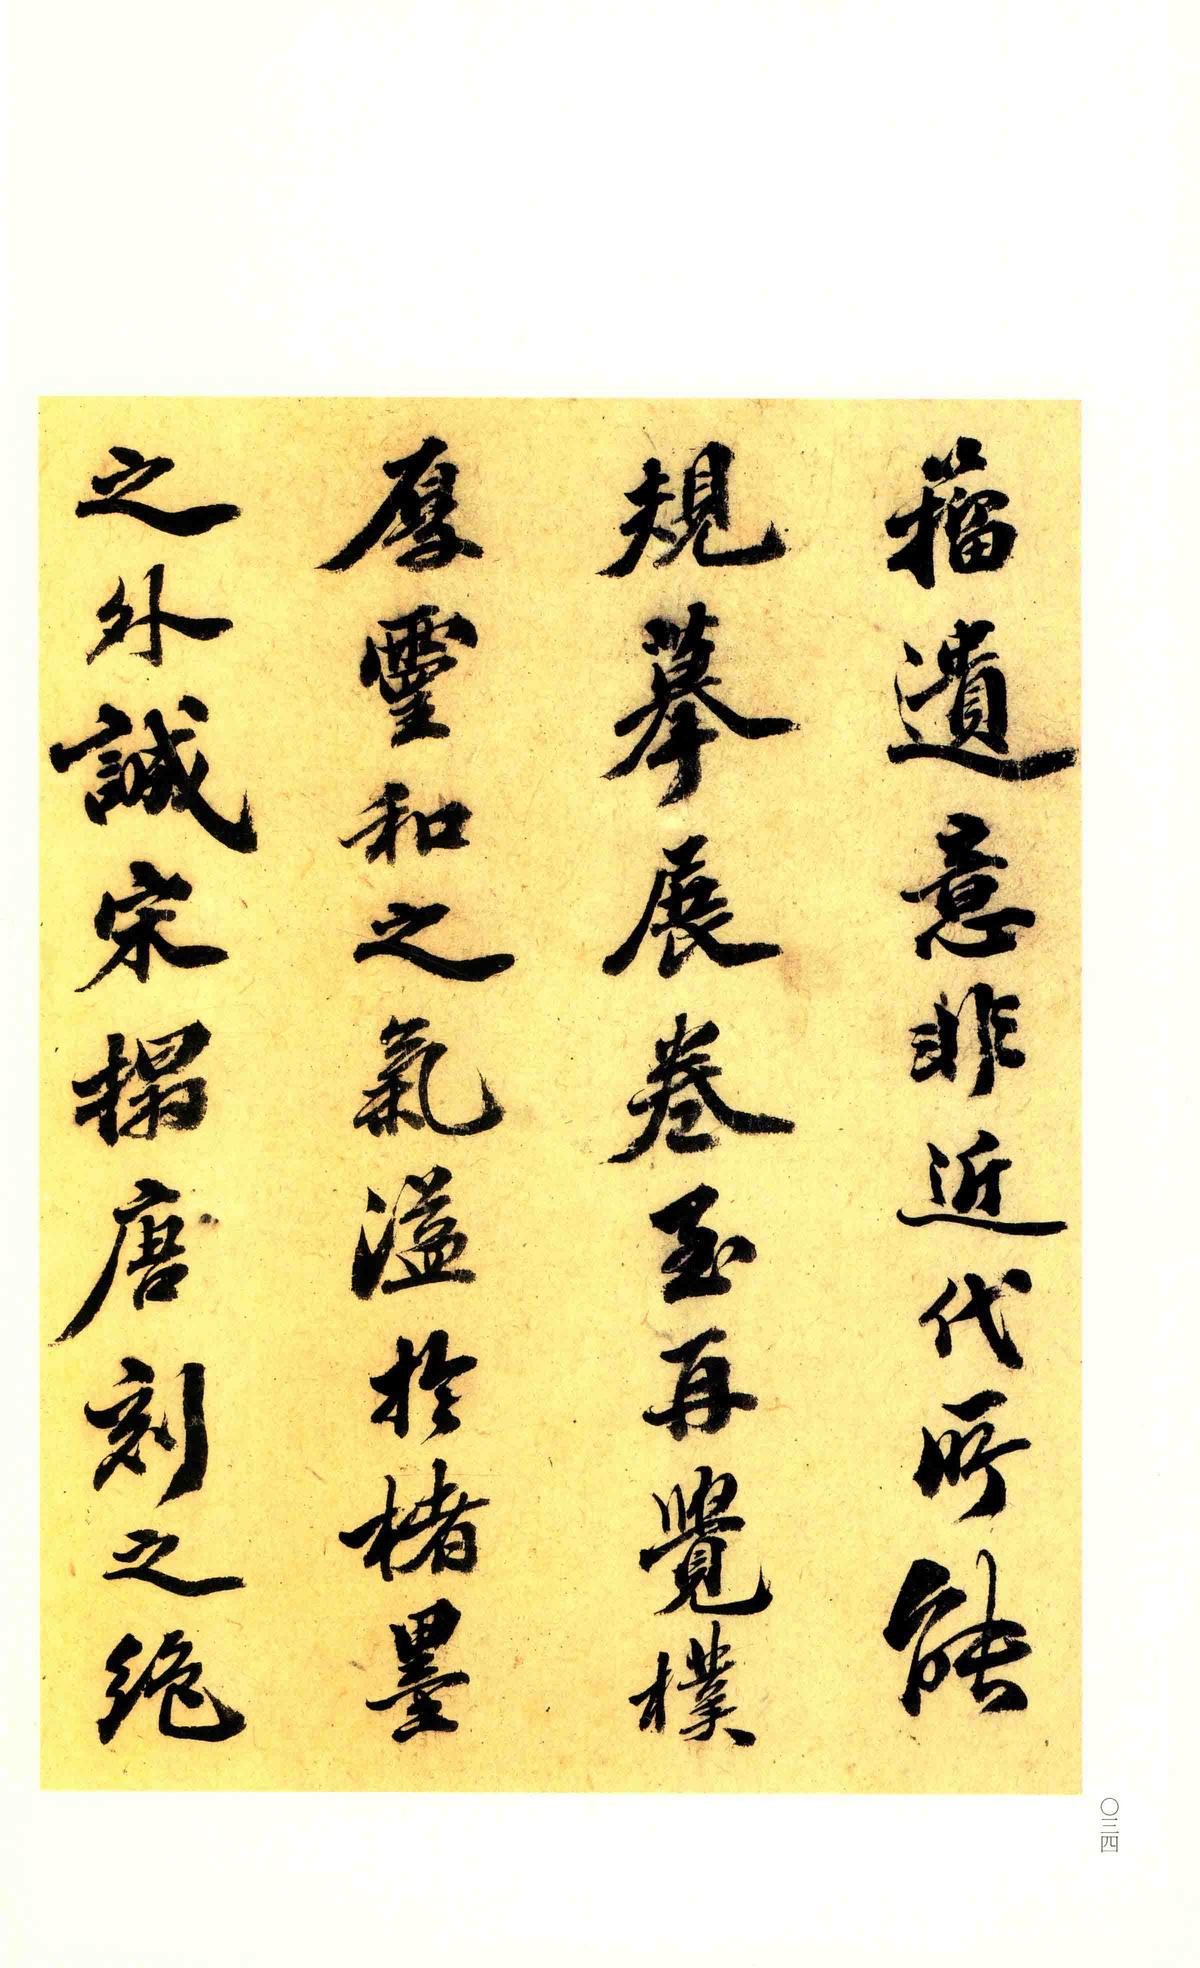 籀遺意非近代所能
規摹展卷至再覺樸
厚靈和之氣溢於楮墨
之外誠宋搨唐刻之絶
〇三四